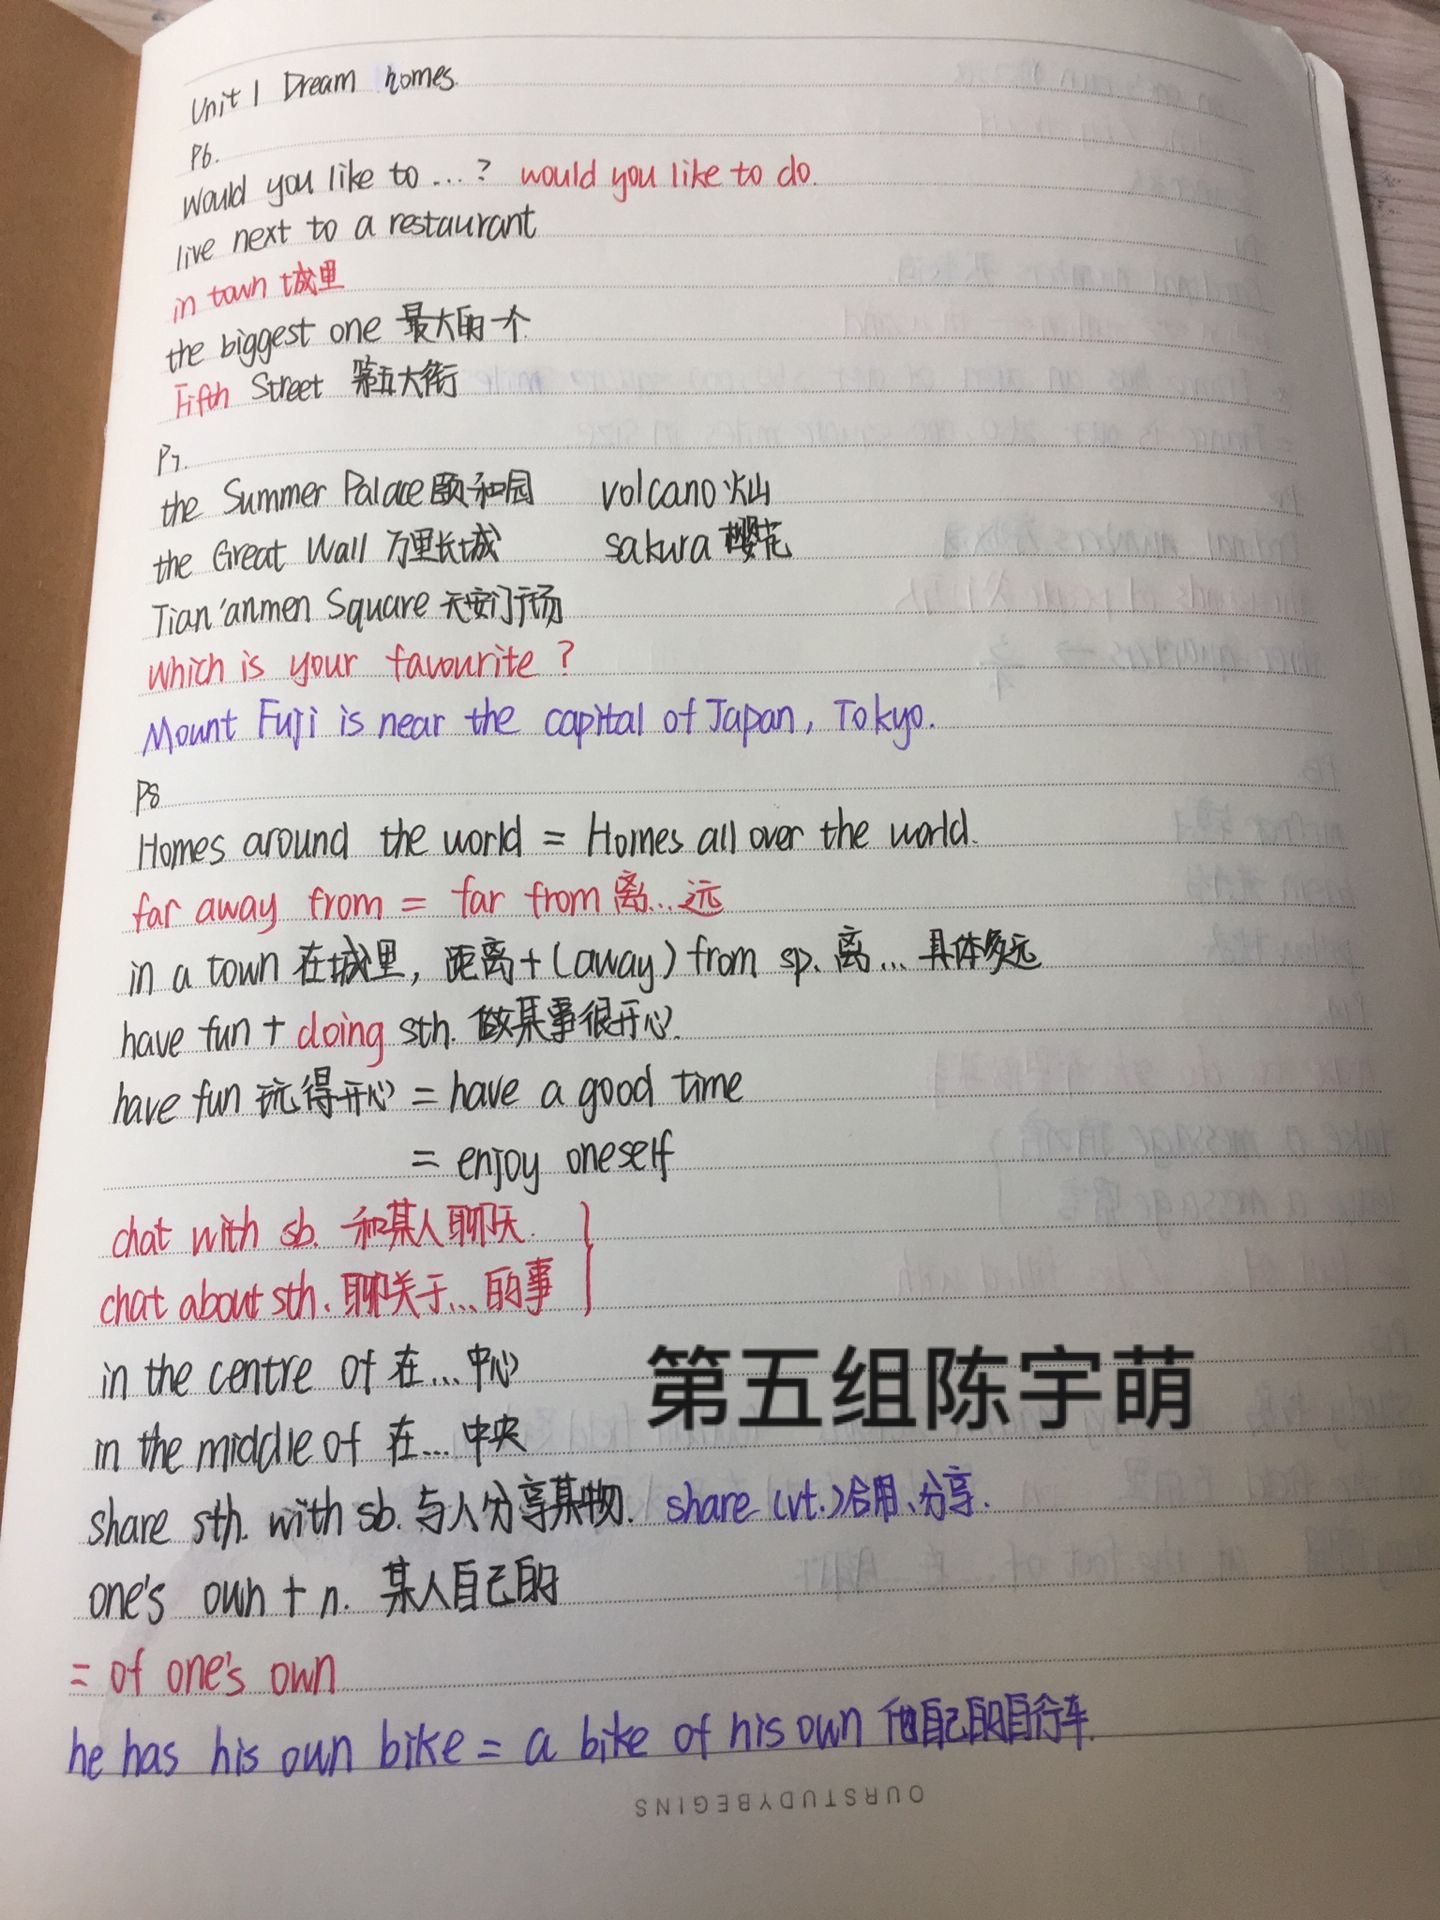 Unit 1 Dream homes.
P6.
Would you like to ...? would you like to do.
live next to a restaurant
in town 城里
the biggest one 最大的一个.
Fifth Street 第五大街
P7.
the Summer Palace 颐和园 volcano 火山
the Great Wall 万里长城 sakura 樱花
Tian'anmen Square 天安门广场
Which is your favourite?
Mount Fuji is near the capital of Japan, Tokyo.
P8
Homes around the world = Homes all over the world.
far away from = far from 离...远
in a town 在城里, 距离+(away) from sp. 离... 具体多远
have fun + doing sth. 做某事很开心.
have fun 玩得开心 = have a good time
= enjoy oneself
chat with sb. 和某人聊天.
chat about sth. 聊关于...的事
in the centre of 在...中心
第五组陈宇萌
in the middle of 在...中央
share sth. with sb. 与人分享某物. share (vt.)合用、分享.
one's own + n. 某人自己的
= of one's own
he has his own bike = a bike of his own 他自己的自行车.
OURSTUDYBEGINS